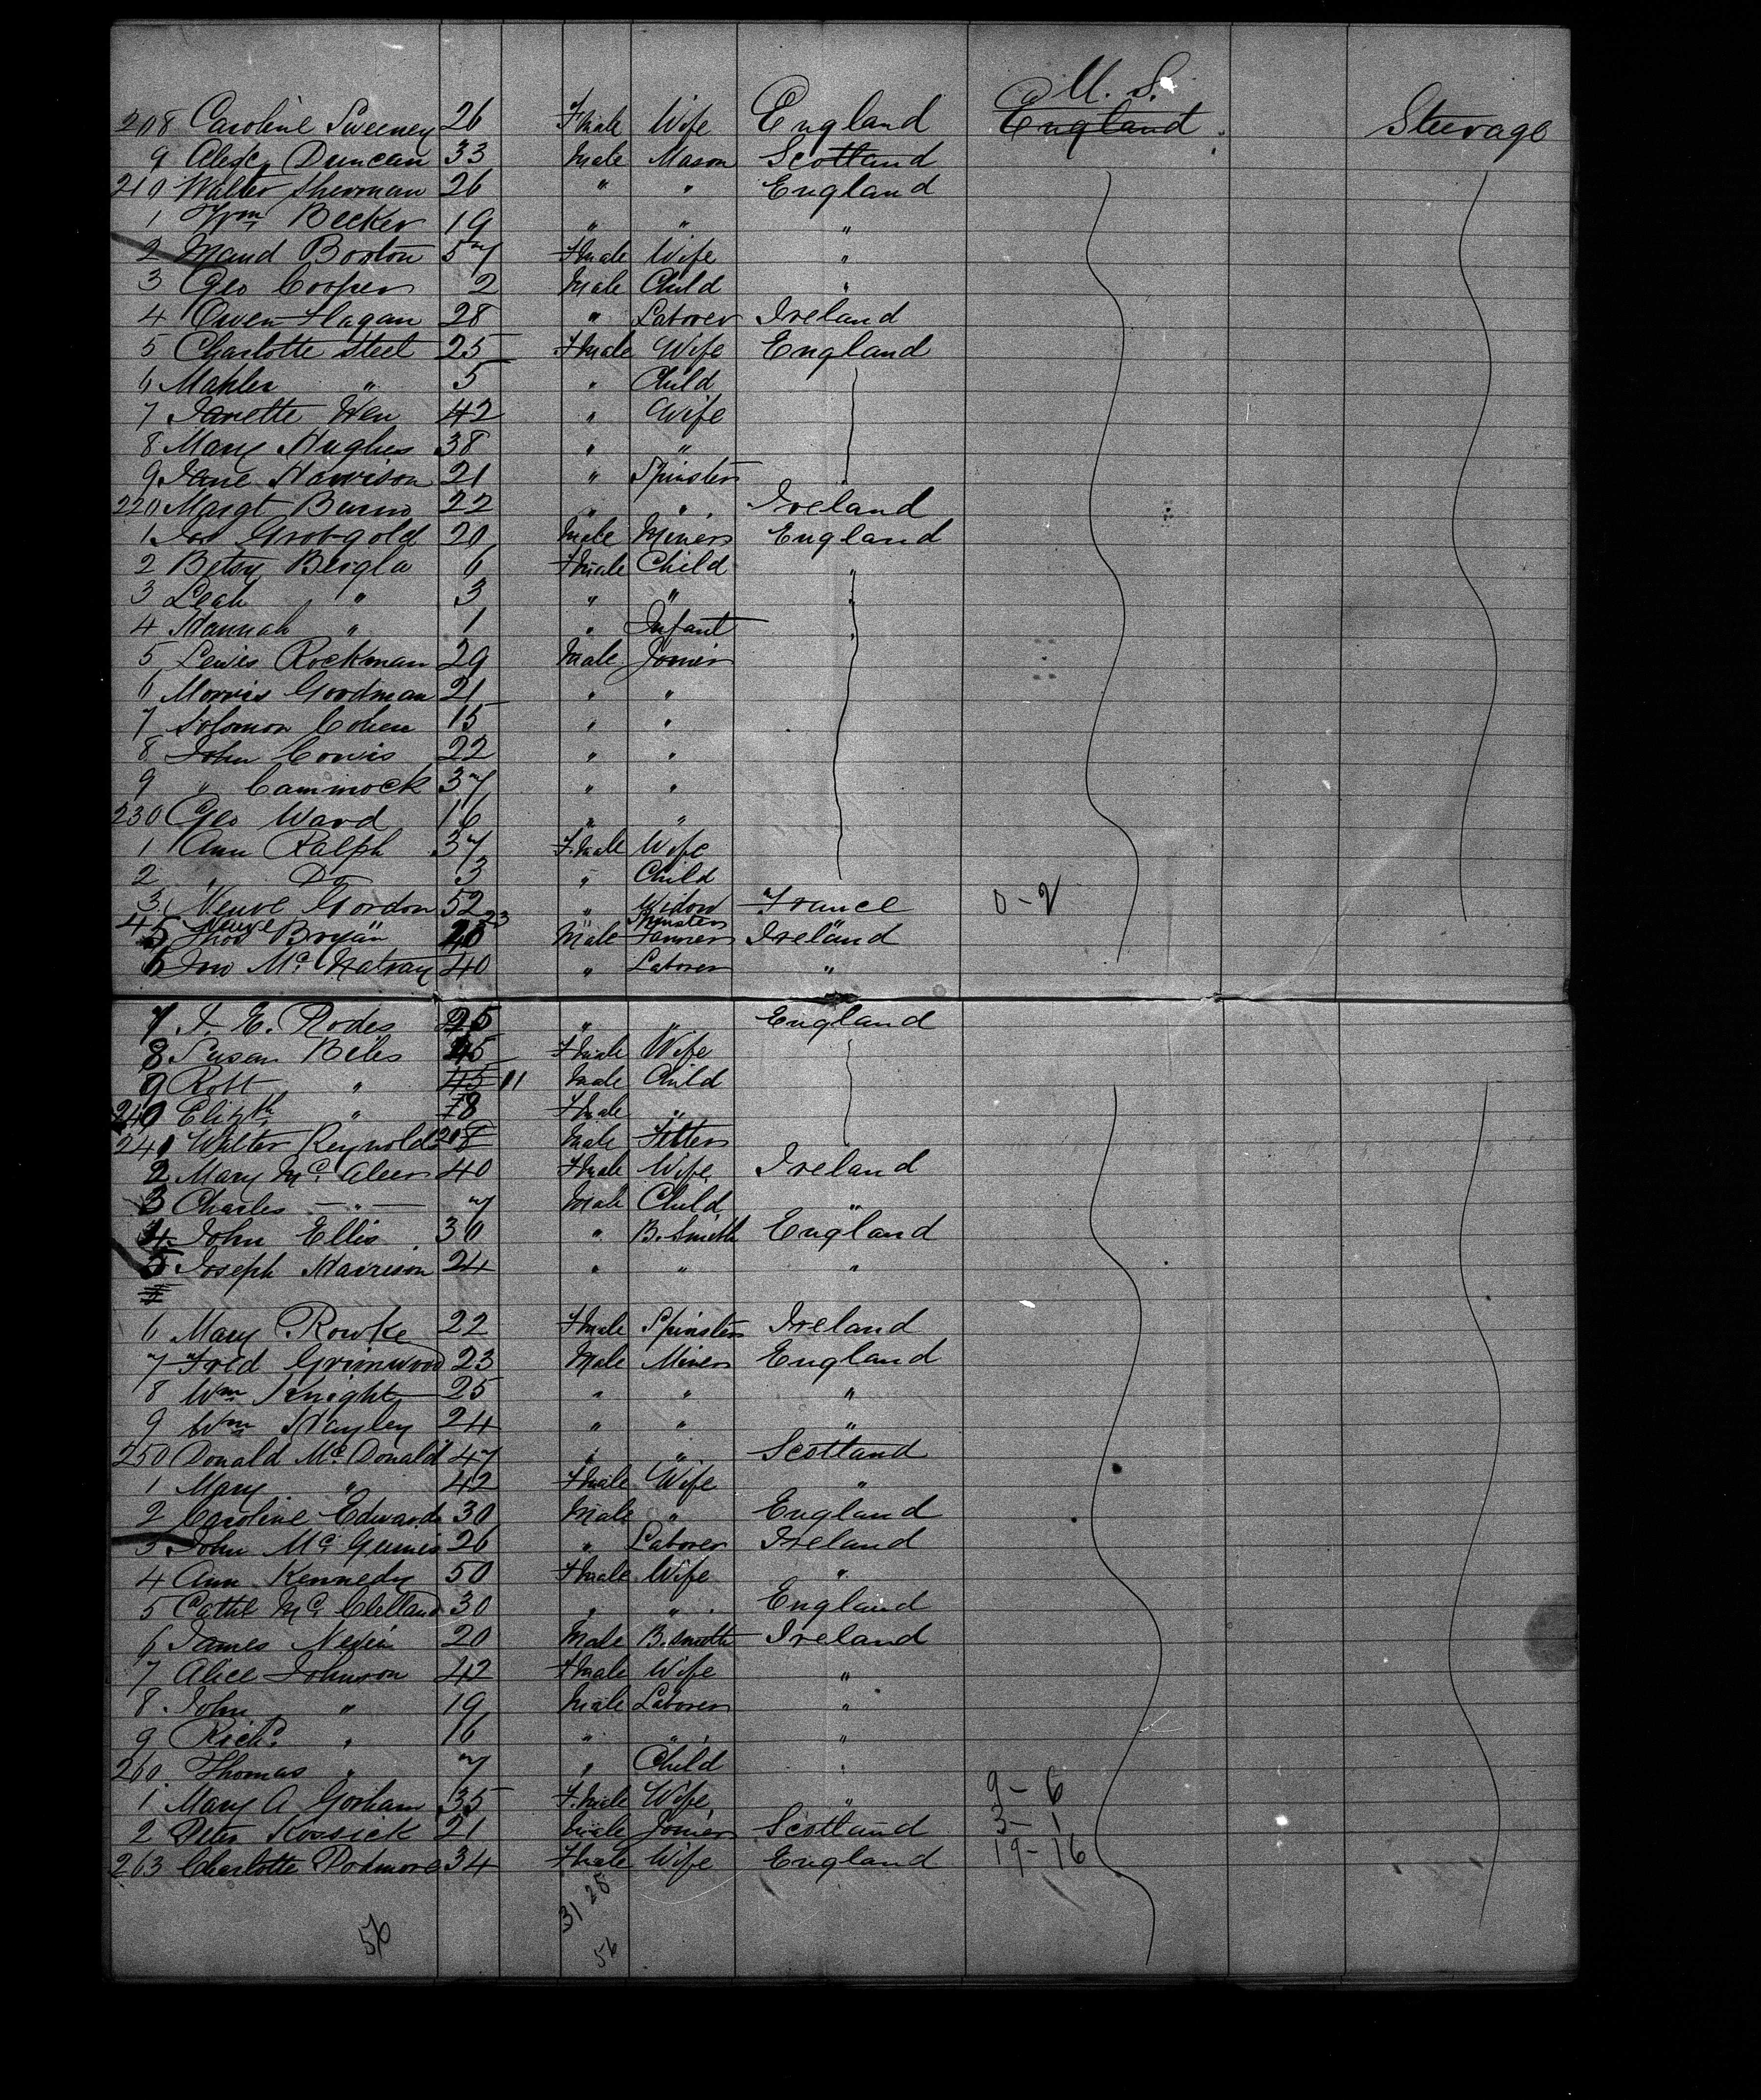 U. S.
208 Caroline Sweeney 26 Fmale Wife England England Steerage
9 Alexr Duncan 33 Male Mason Scotland
210 Walter Sherman 26 " " England
1 Wm Becker 19 " " "
2 Maud Borton 57 Fmale Wife "
3 Geo Cooper 2 Male Child "
4 Owen Hagan 28 " Laborer Ireland
5 Charlotte Steel 25 Fmale Wife England
6 " 5 " Child
7 Janette 42 " Wife
8 Mary Hughes 38 " "
9 Jane Harrison 21 " Spinster
220 Margt Burns 22 " " Ireland
1 Jos Grobgold 20 Male Miner England
2 Betsy Bergla 6 Fmale Child "
3 Leah " 3 " " "
4 Hannah " 1 " Infant "
5 Lewis Rockman 29 Male Joiner
6 Morris Goodman 21 " "
7 Solomon Cohen 15 " "
8 John 22 " "
9 " Cammock 37 " "
230 Geo Ward 16 " "
1 Ann Ralph 37 Fmale Wife
2 " Do 3 " Child
3 Veuve Gordon 52 " Widow France 0-2
4 23 " Spinster "
5 Thos Bryan 20 Male Farmer Ireland
6 Jno Mc 40 " Laborer "
7 J. E. Rodes 25 " " England
8 Susan Biles 45 Fmale Wife
9 Robt " 45 11 Male Child
240 Elizth " 8 Fmale "
241 Walter Reynolds 28 Male Fitter
2 Mary McAleer 40 Fmale Wife Ireland
3 Charles — " — 7 Male Child "
4 John Ellis 30 " B. Smith England
5 Joseph Harrison 24 " " "
6 Mary Rowke 22 Fmale Spinster Ireland
7 Fred Grimwood 23 Male Miner England
8 Wm Knight 25 " " "
9 Wm Hayley 24 " " "
250 Donald McDonald 47 " " Scotland
1 Mary " 42 Fmale Wife "
2 Caroline Edwards 30 Male " England
3 John McGuinis 26 " Laborer Ireland
4 Ann Kennedy 50 Fmale Wife "
5 Cathe McClelland 30 " " England
6 James Nevin 20 Male B. Smith Ireland
7 Alice Johnson 42 Fmale Wife "
8 John " 19 Male Laborer "
9 Richd " 16 " " "
260 Thomas " 7 " Child "
1 Mary A Gorham 35 Fmale Wife " 9-6
2 Peter Kossick 21 Male Joiner Scotland 3-1
263 Charlotte Podmore 34 Fmale Wife England 19-16
31 25
56 56